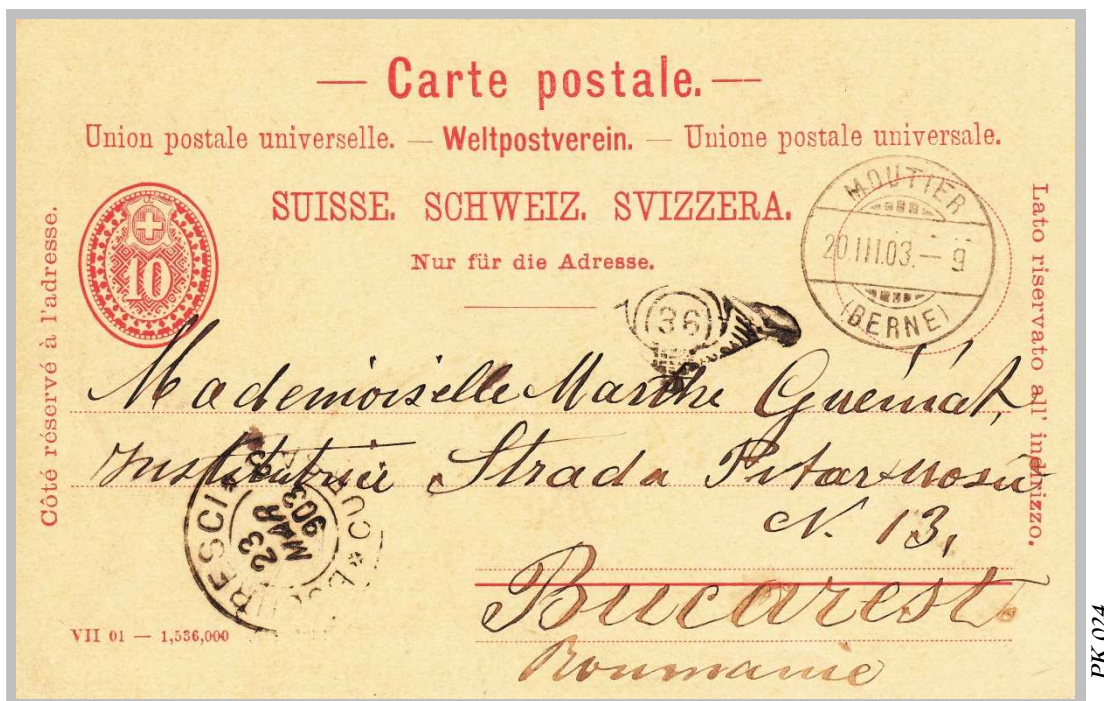 — Carte postale. —
Union postale universelle. — Weltpostverein. — Unione postale universale.
SUISSE. SCHWEIZ. SVIZZERA.
Nur für die Adresse.
Côté réservé à l'adresse.
Lato riservato all' indirizzo.
10
MOUTIER
20.III.03. — 9
(BERNE)
36
Mademoiselle Marthe Guémat,
Institutrice Strada Pitar-Mosu
N. 13,
Bucarest
Roumanie
23
MAR
903
VII 01 — 1,536,000
PK 024